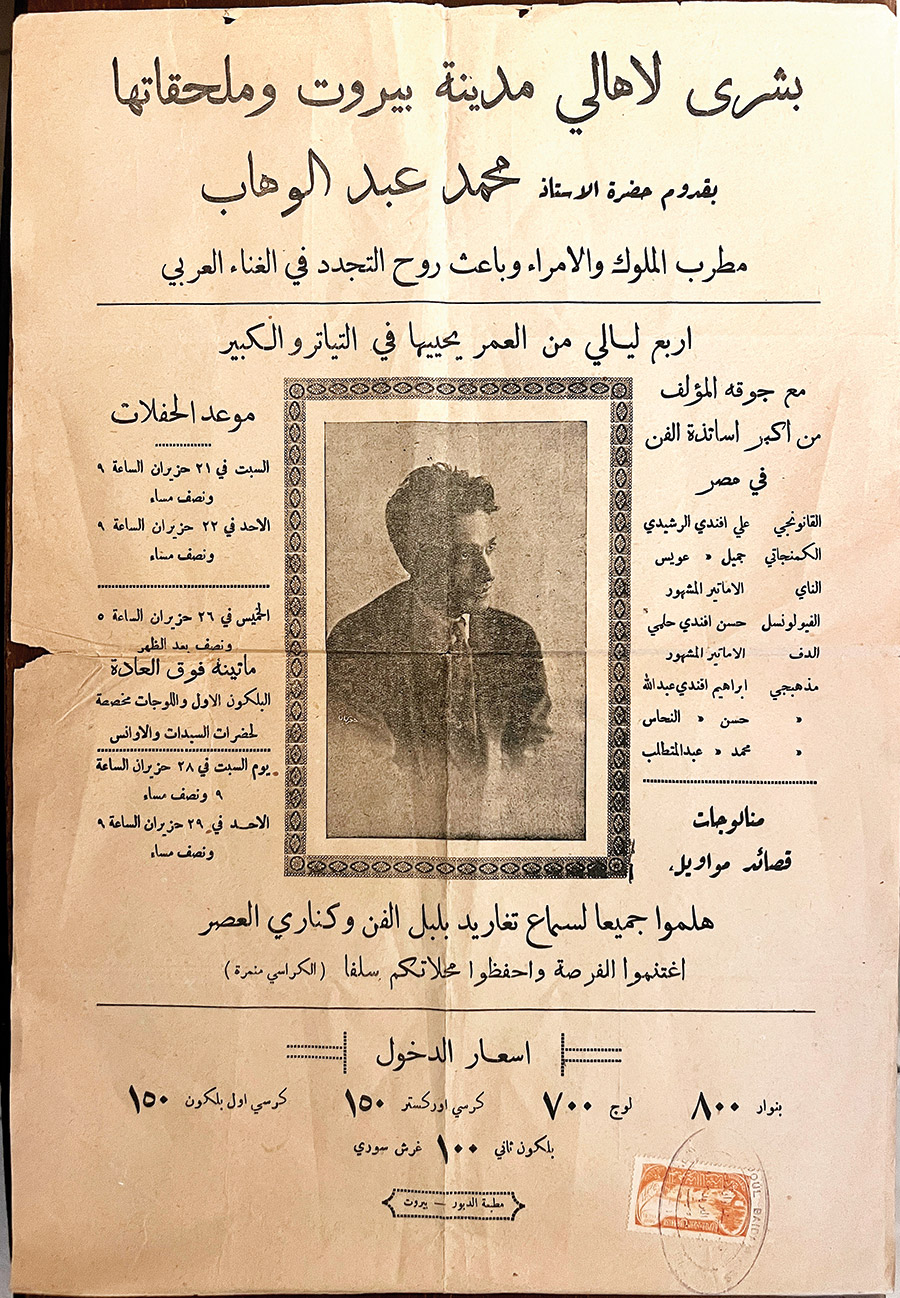 بشرى لاهالي مدينة بيروت وملحقاتها
بقدوم حضرة الاستاذ محمد عبد الوهاب
مطرب الملوك والامراء وباعث روح التجدد في الغناء العربي
اربع ليالي من العمر يحييها في التياترو الكبير
مع جوقه المؤلف
من اكبر اساتذة الفن
في مصر
القانونجي علي افندي الرشيدي
الكمنجاتي جميل » عويس
الناي الاماتير المشهور
الفيولونسل حسن افندي حلمي
الدف الاماتير المشهور
مذهبجي ابراهيم افندي عبدالله
» حسن » النحاس
» محمد » عبدالمتطلب
منالوجات
قصائد مواويل،
موعد الحفلات
السبت في ٢١ حزيران الساعة ٩
ونصف مساء
الاحد في ٢٢ حزيران الساعة ٩
ونصف مساء
الخميس في ٢٦ حزيران الساعة ٥
ونصف بعد الظهر
ماتينه فوق العادة
البلكون الاول واللوجات مخصصة
لحضرات السيدات والاوانس
يوم السبت في ٢٨ حزيران الساعة
٩ ونصف مساء
الاحد في ٢٩ حزيران الساعة ٩
ونصف مساء
هلموا جميعا لسماع تغاريد بلبل الفن وكناري العصر
اغتنموا الفرصة واحفظوا محلاتكم سلفا (الكراسي منمرة)
اسعار الدخول
بنوار ٨٠٠ لوج ٧٠٠ كرسي اوركستر ١٥٠ كرسي اول بلكون ١٥٠
بلكون ثاني ١٠٠ غرش سوري
مطبعة الدبور — بيروت